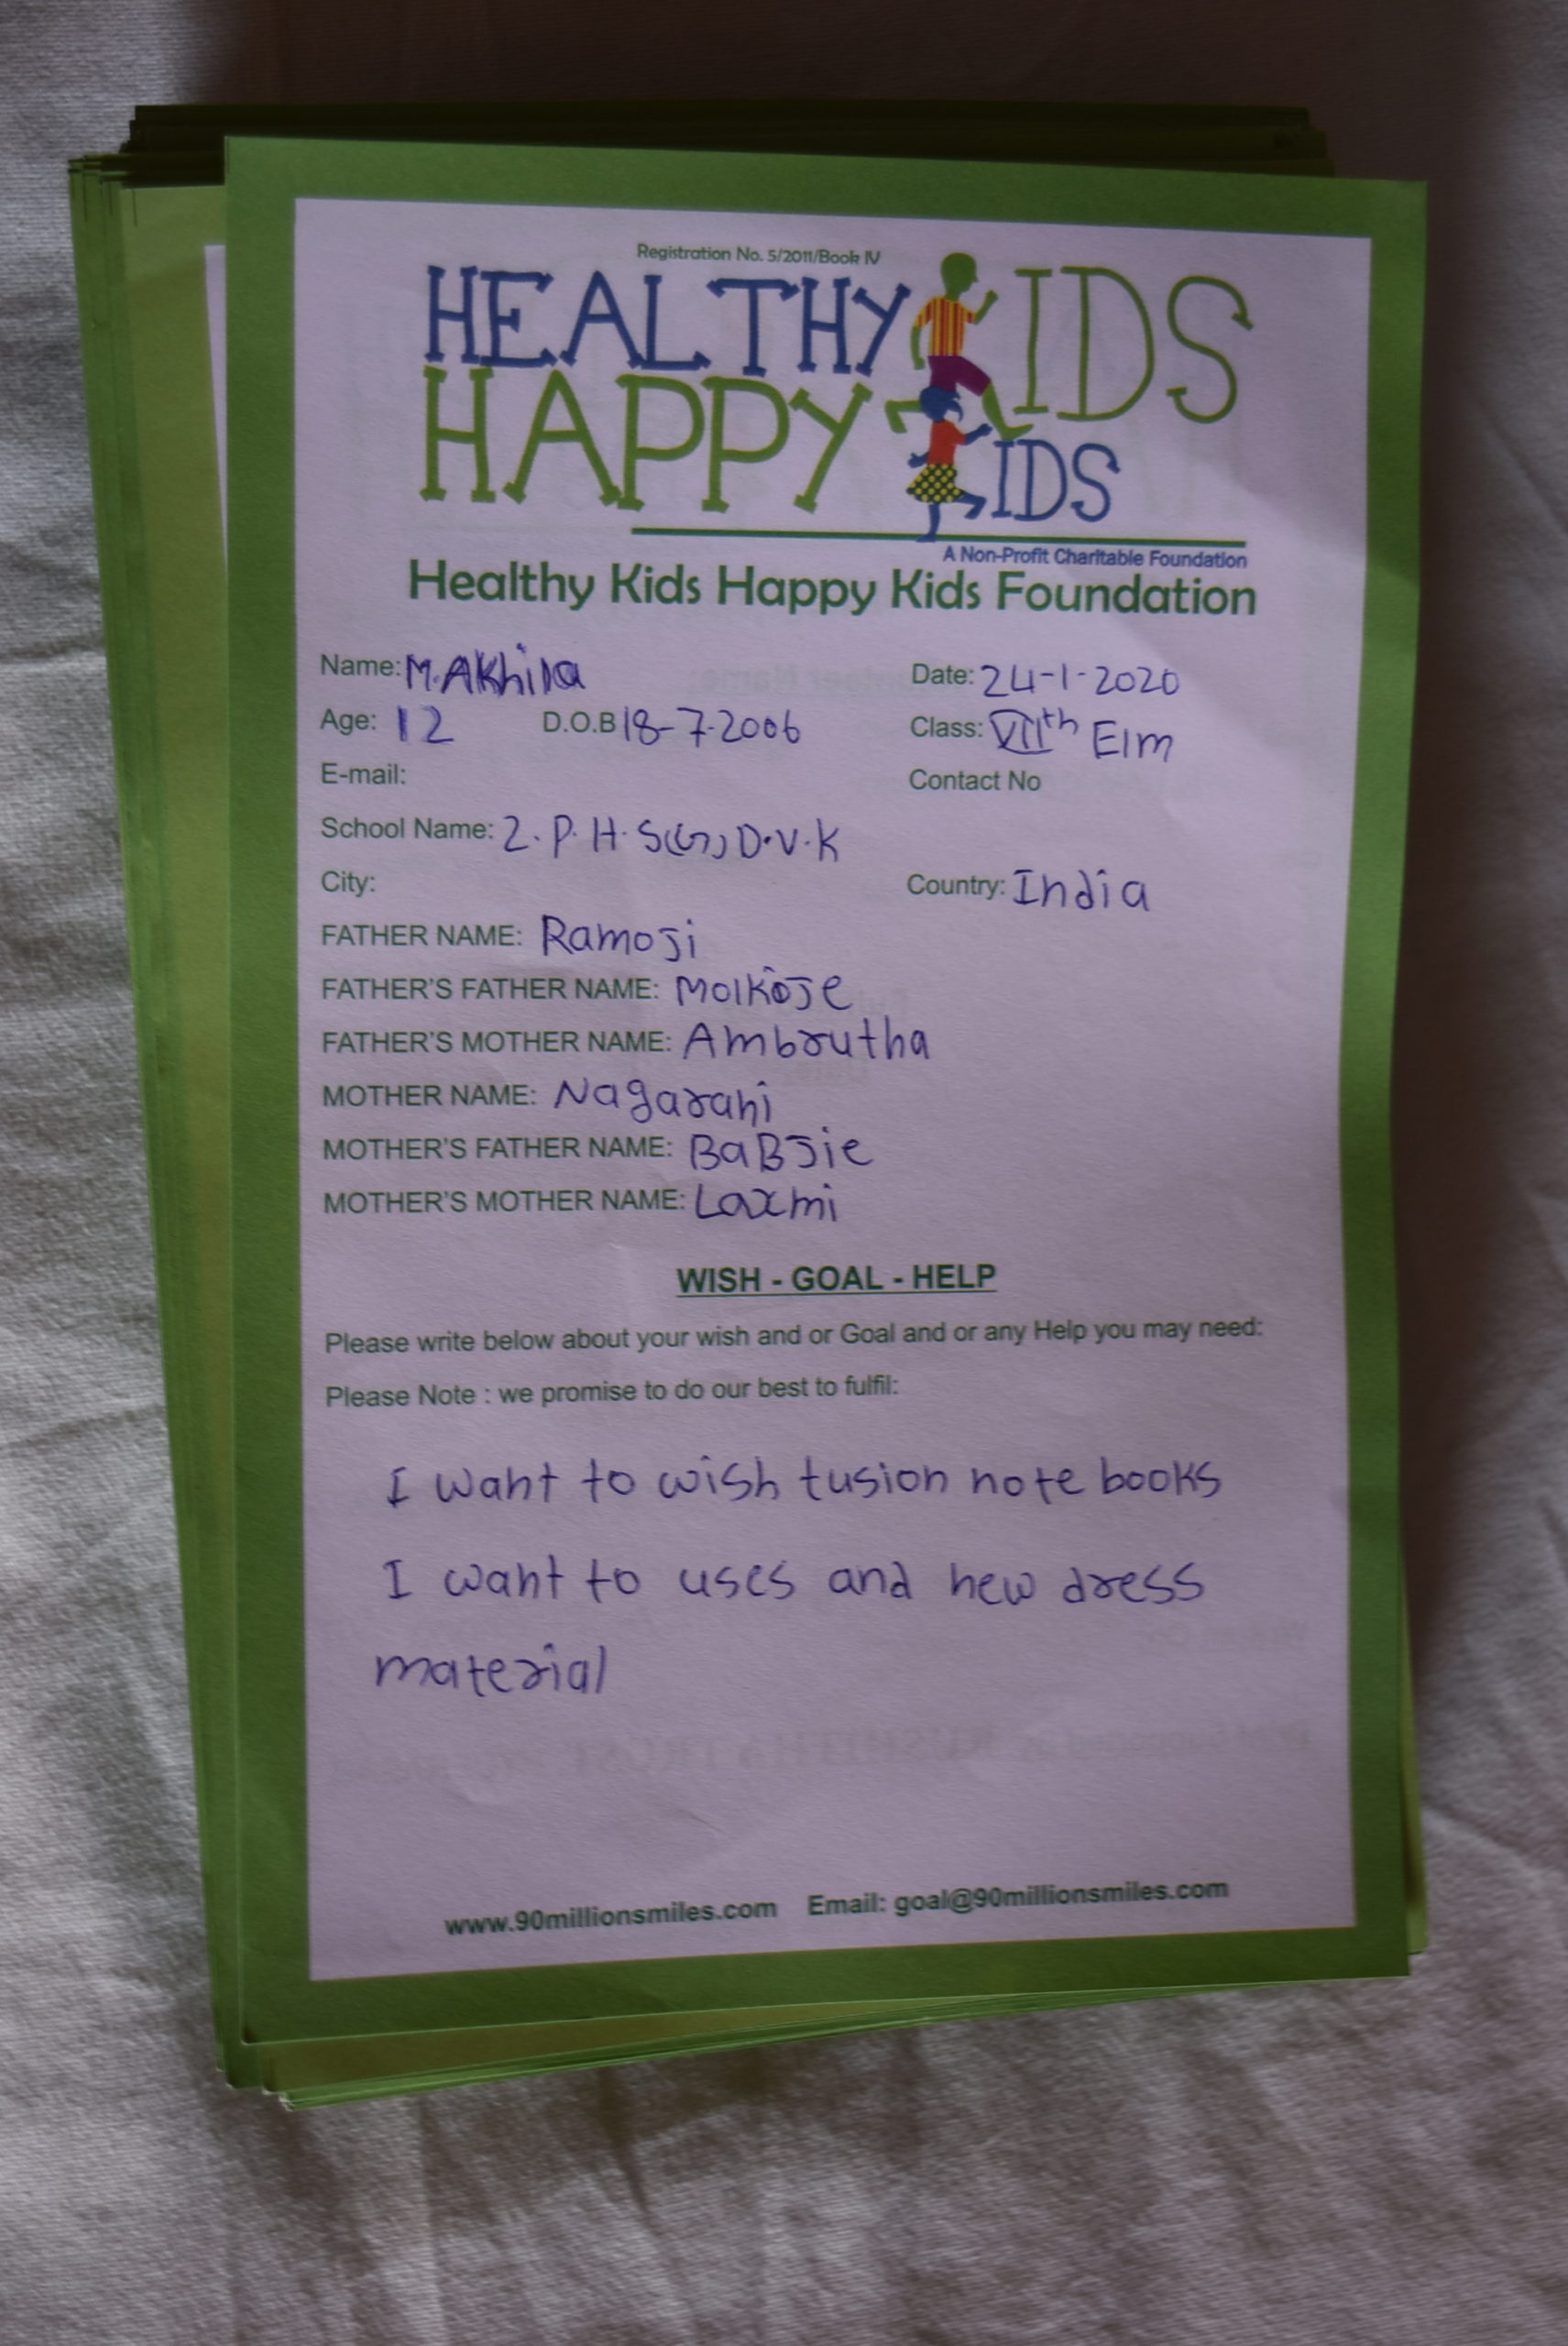 Registration No. 5/2011/Book IV
HEALTHY KIDS
HAPPY KIDS
A Non-Profit Charitable Foundation
Healthy Kids Happy Kids Foundation
Name: M.Akhila Date: 24-1-2020
Age: 12 D.O.B 18-7-2006 Class: VIIth EIm
E-mail: Contact No
School Name: Z.P.H.S(G) D.V.K
City: Country: India
FATHER NAME: Ramoji
FATHER'S FATHER NAME: Molkoje
FATHER'S MOTHER NAME: Ambrutha
MOTHER NAME: Nagarani
MOTHER'S FATHER NAME: BaBJie
MOTHER'S MOTHER NAME: Laxmi
WISH - GOAL - HELP
Please write below about your wish and or Goal and or any Help you may need:
Please Note : we promise to do our best to fulfil:
I want to wish tusion note books
I want to uses and new dress
material
www.90millionsmiles.com Email: goal@90millionsmiles.com